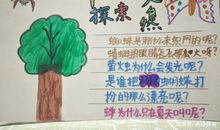 探索
蜘蛛是用什么来织网的呢?
蜻蜓的眼睛怎么那么大呢?
萤火虫为什么会发光呢?
是谁把蝴蝶打
扮的那么漂亮呢?
蝉为什么只在夏天叫呢?